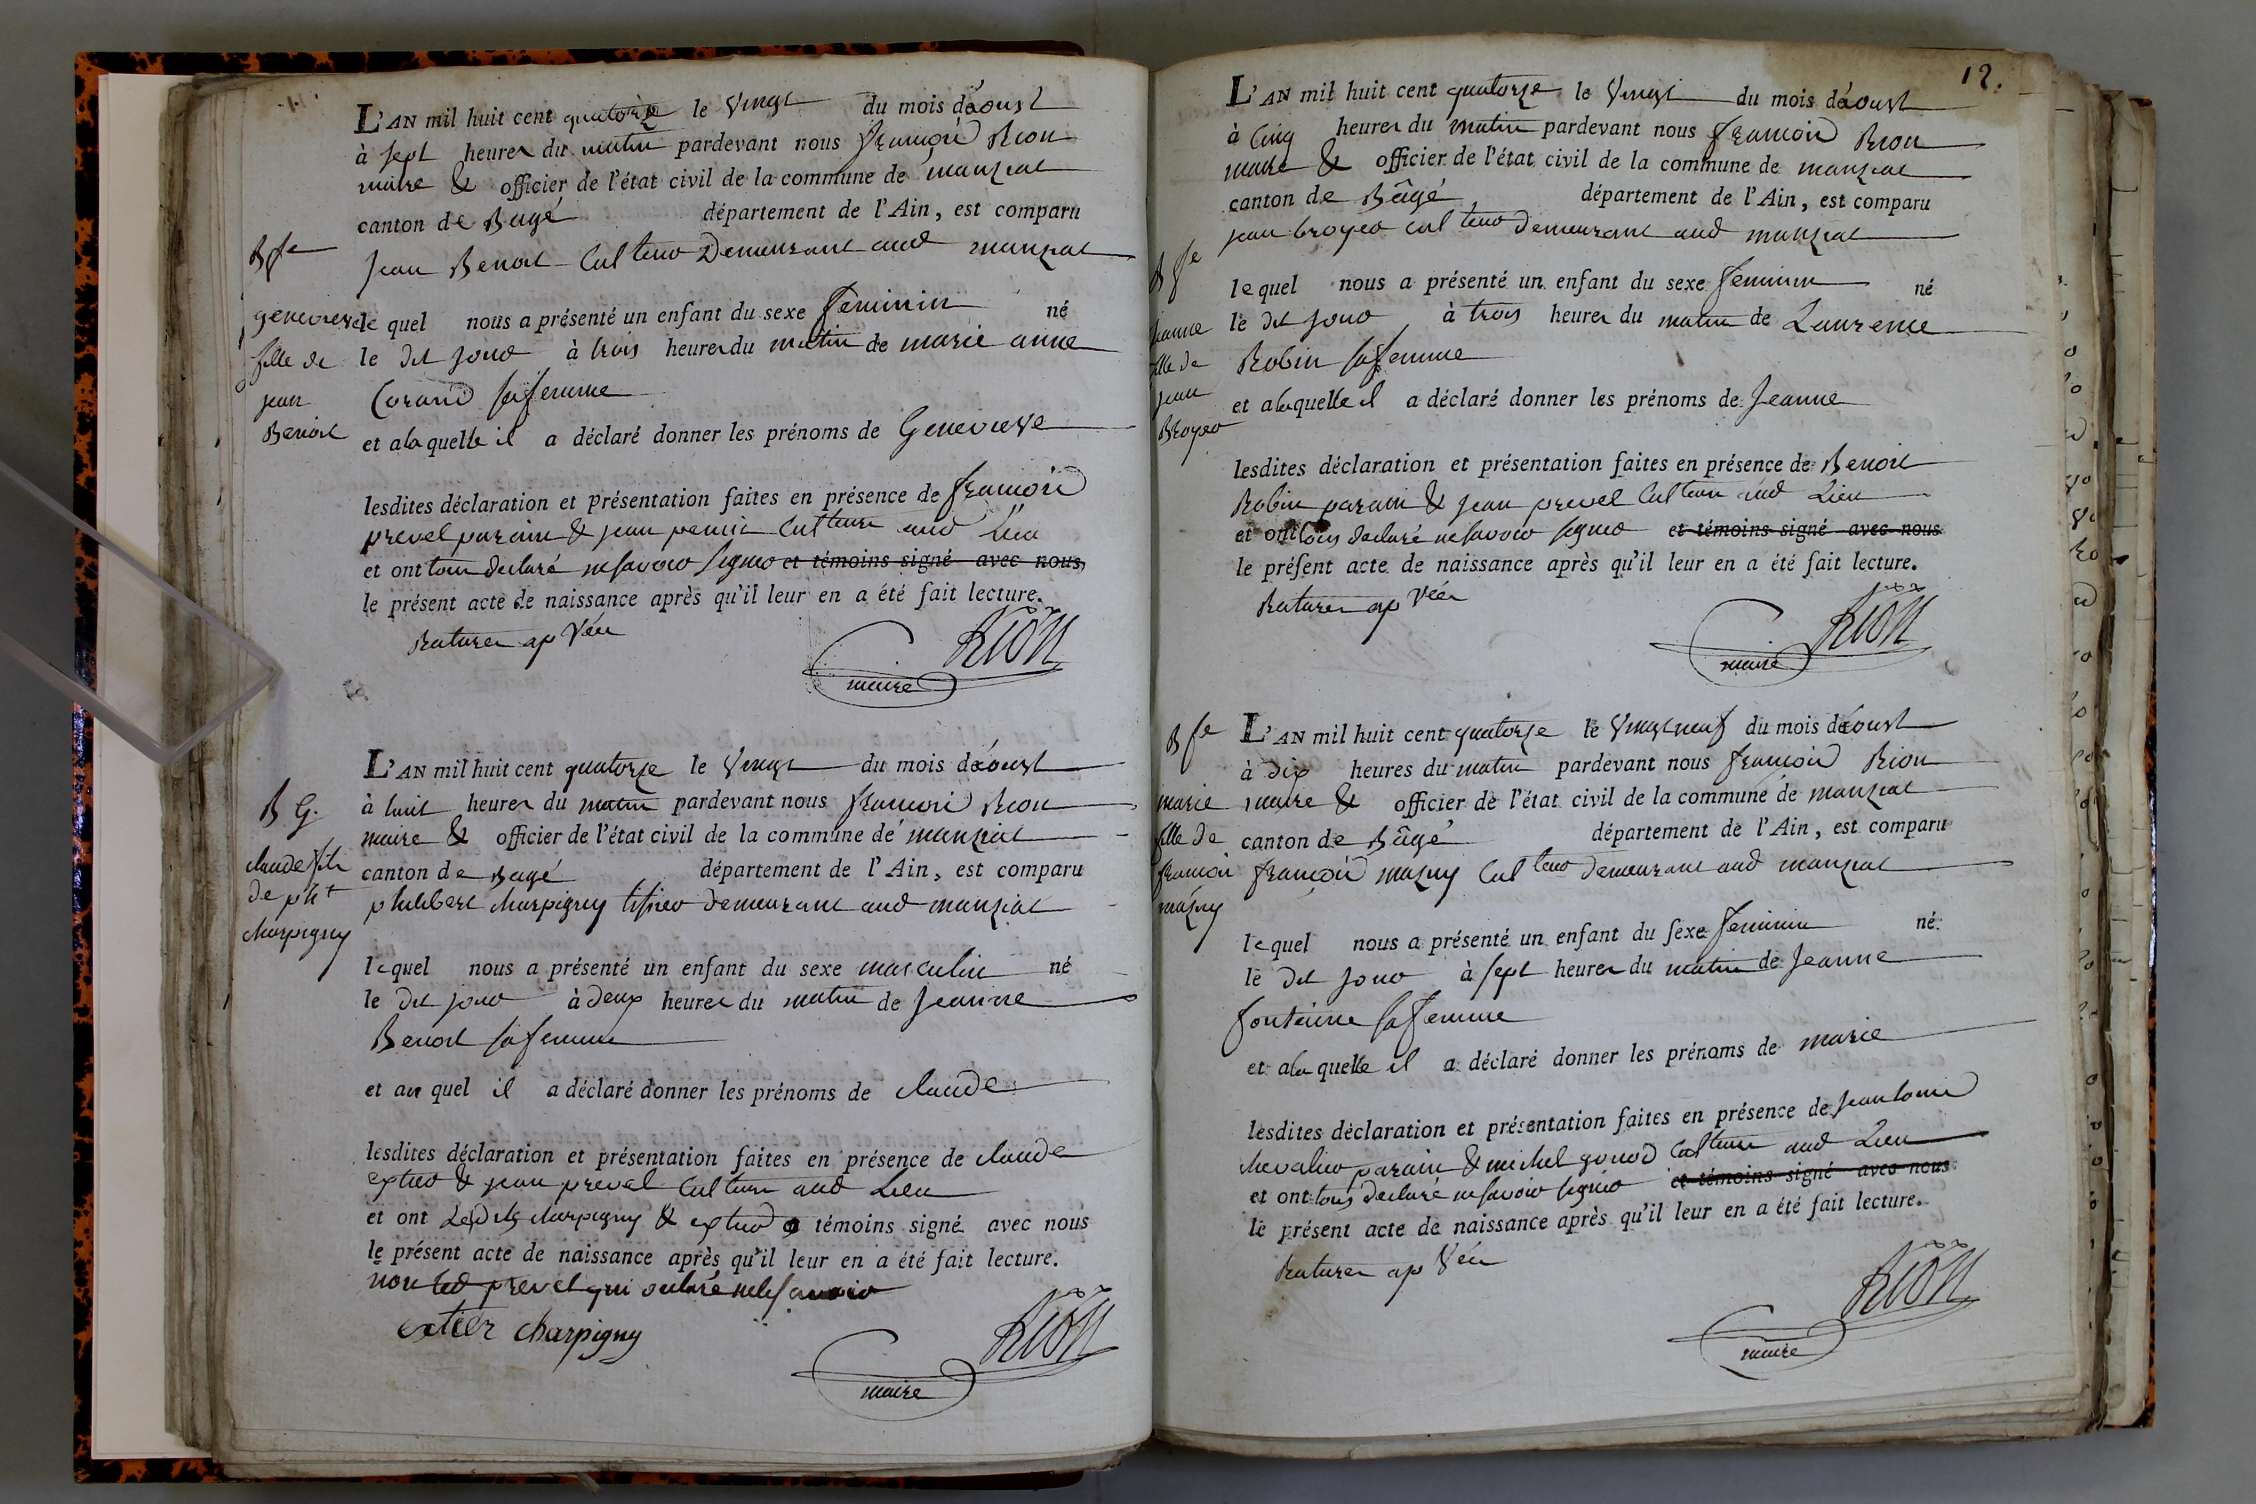 L'AN mil huit cent quatorze le vingt du mois d'aoust
à sept heures du matin pardevant nous françois Rion
maire & officier de l'état civil de la commune de manziat
canton de Bagé département de l'Ain, est comparu
Jean Benoit Cultteur Demeurant aud manziat
Bfe
genevieve
fille de
jean
Benoit
le quel nous a présenté un enfant du sexe feminin né
le dit jour à trois heures du matin de marie anne
sa femme
et a la quelle il a déclaré donner les prénoms de Genevieve
lesdites déclaration et présentation faites en présence de françois
prevel parain & jean cultteurs aud Lieu
et ont tous declaré ne savoir signer et témoins signé avec nous,
le présent acte de naissance après qu'il leur en a été fait lecture.
Ratures ap vées
Rion
maire
L'AN mil huit cent quatorze le vingt du mois d'aoust
à huit heures du matin pardevant nous françois Rion
maire & officier de l'état civil de la commune de manziat
canton de Bagé département de l'Ain, est comparu
philibert charpigny tissier demeurant aud manziat
B G.
claude fils
de pht
charpigny
le quel nous a présenté un enfant du sexe masculin né
le dit jour à deux heures du matin de Jeanne
Benoit sa femme
et au quel il a déclaré donner les prénoms de claude
lesdites déclaration et présentation faites en présence de claude
extier & jean prevel cultteurs aud Lieu
et ont Lesdits charpigny & extier témoins signé avec nous
le présent acte de naissance après qu'il leur en a été fait lecture.
non led prevel qui a declaré ne le savoir
extier charpigny
Rion
maire
12.
L'AN mil huit cent quatorze le vingt du mois d'aoust
à cinq heures du matin pardevant nous françois Rion
maire & officier de l'état civil de la commune de manziat
canton de Bâgé département de l'Ain, est comparu
jean broyer cultteur demeurant aud manziat
B fe
jeanne
fille de
jean
Broyer
le quel nous a présenté un enfant du sexe feminin né
le dit jour à trois heures du matin de Laurence
Robin sa femme
et a la quelle il a déclaré donner les prénoms de Jeanne
lesdites déclaration et présentation faites en présence de Benoit
Robin parain & jean prevel cultteurs aud Lieu
et ont tous declaré ne savoir signer et témoins signé avec nous
le présent acte de naissance après qu'il leur en a été fait lecture.
Ratures ap vées
Rion
maire
B fe
marie
fille de
françois
mazuy
L'AN mil huit cent quatorze le vingt neuf du mois d'aoust
à dix heures du matin pardevant nous françois Rion
maire & officier de l'état civil de la commune de manziat
canton de Bâgé département de l'Ain, est comparu
françois mazuy cultteur demeurant aud manziat
le quel nous a présenté un enfant du sexe feminin né
le dit jour à sept heures du matin de Jeanne
fontaine sa femme
et a la quelle il a déclaré donner les prénoms de marie
lesdites déclaration et présentation faites en présence de jean louis
chevalier parain & michel gonod cultteurs aud Lieu
et ont tous declaré ne savoir signer et témoins signé avec nous
le présent acte de naissance après qu'il leur en a été fait lecture.
Ratures ap vées
Rion
maire